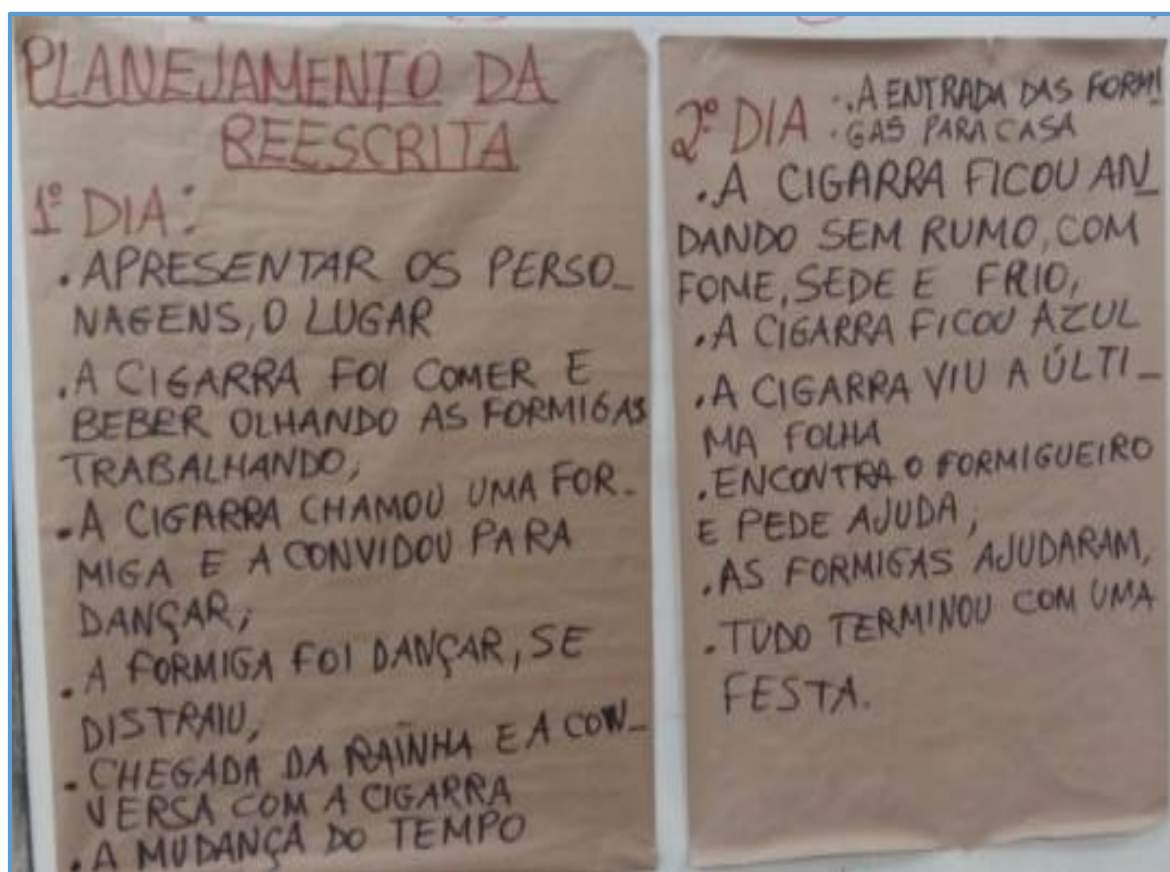 PLANEJAMENTO DA
REESCRITA
1º DIA:
. APRESENTAR OS PERSO_
NAGENS, O LUGAR
. A CIGARRA FOI COMER E
BEBER OLHANDO AS FORMIGAS
TRABALHANDO,
. A CIGARRA CHAMOU UMA FOR_
MIGA E A CONVIDOU PARA
DANÇAR;
. A FORMIGA FOI DANÇAR, SE
DISTRAIU,
. CHEGADA DA RAINHA E A CON_
VERSA COM A CIGARRA
. A MUDANÇA DO TEMPO
2º DIA . A ENTRADA DAS FORMI
GAS PARA CASA
. A CIGARRA FICOU AN_
DANDO SEM RUMO, COM
FOME, SEDE E FRIO,
. A CIGARRA FICOU AZUL
. A CIGARRA VIU A ÚLTI_
MA FOLHA
. ENCONTRA O FORMIGUEIRO
E PEDE AJUDA,
. AS FORMIGAS AJUDARAM,
. TUDO TERMINOU COM UMA
FESTA.